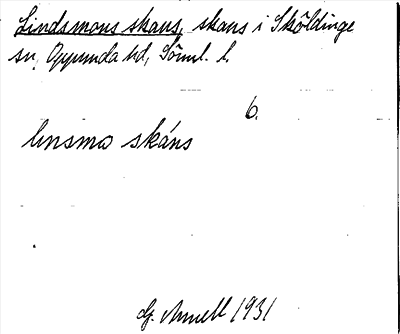 Lindsmons skans, skans i Sköldinge
sn, Oppunda hd, Söml. l.
6.
linsmo skáns
G. Amell 1931